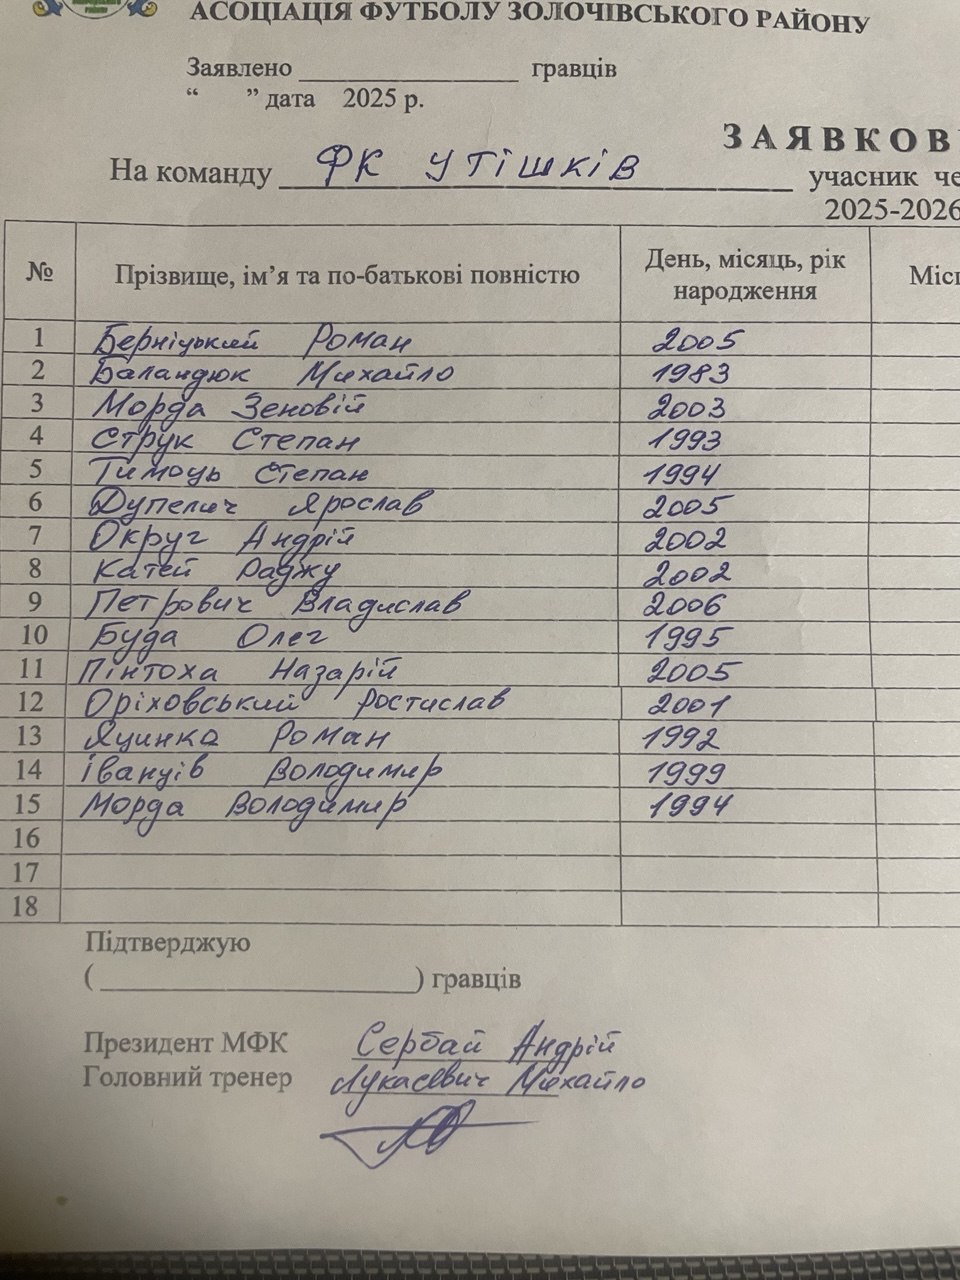 АСОЦІАЦІЯ ФУТБОЛУ ЗОЛОЧІВСЬКОГО РАЙОНУ
Заявлено ________________ гравців
“ ” дата 2025 р.
ЗАЯВКОВ
На команду ФК УТІШКІВ учасник че
2025-2026
№ Прізвище, ім’я та по-батькові повністю День, місяць, рік народження Місц
1 Берніцький Роман 2005
2 Баландюк Михайло 1983
3 Морда Зеновій 2003
4 Струк Степан 1993
5 Тимоць Степан 1994
6 Дупелич Ярослав 2005
7 Округ Андрій 2002
8 Катей Раджу 2002
9 Петрович Владислав 2006
10 Буда Олег 1995
11 Пінтоха Назарій 2005
12 Оріховський Ростислав 2001
13 Яцинка Роман 1992
14 Іванців Володимир 1999
15 Морда Володимир 1994
16
17
18
Підтверджую
( ________________ ) гравців
Президент МФК Сербай Андрій
Головний тренер Лукасевич Михайло